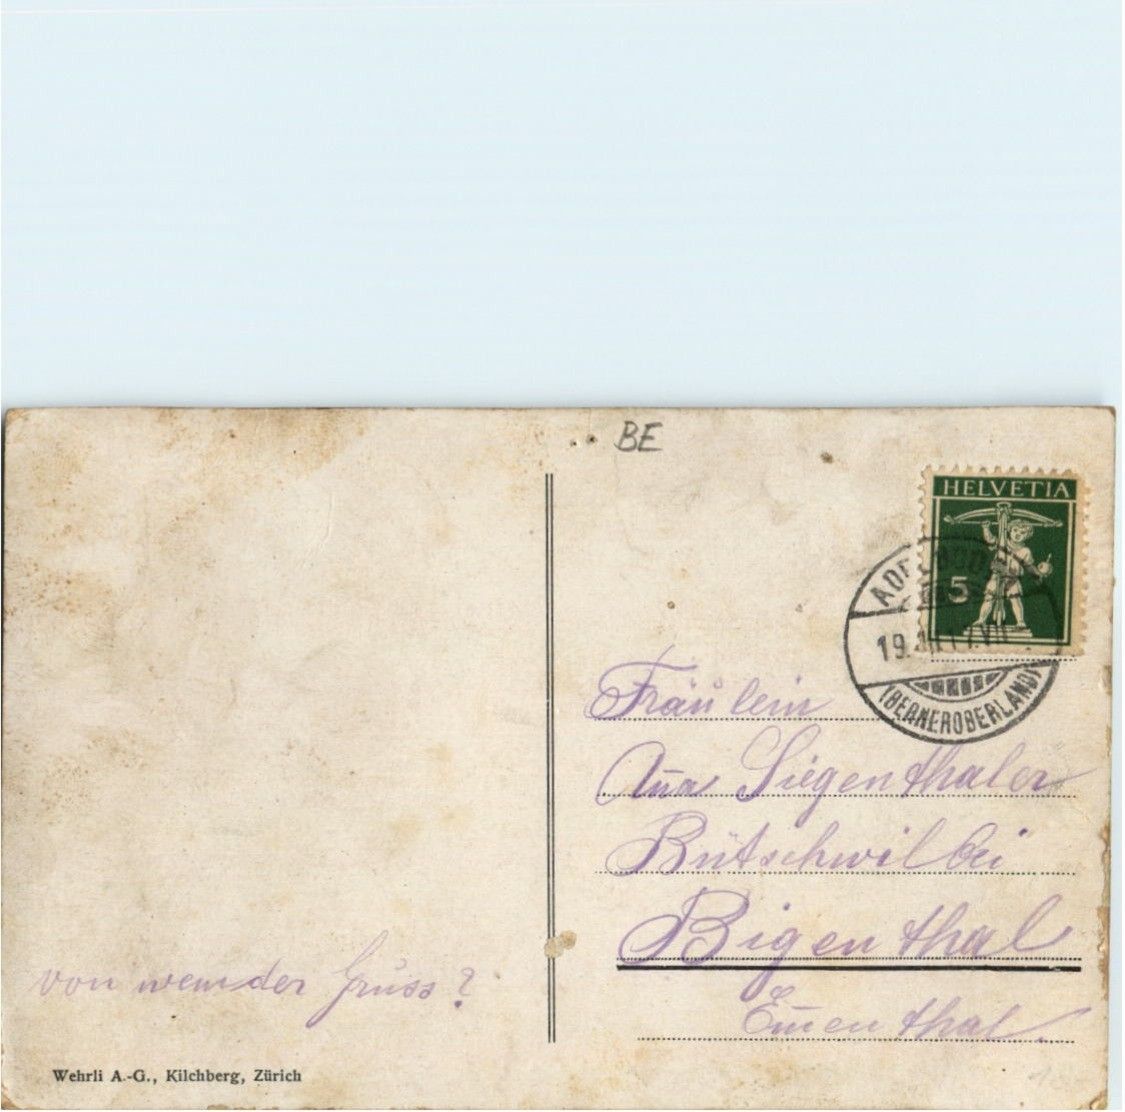 BE
HELVETIA
5
ADELBODEN
(BERNEROBERLAND)
Fräulein
Aña Siegenthaler
Bütschwil bei
Bigenthal
Em̄enthal.
von wem der Gruss?
Wehrli A.-G., Kilchberg, Zürich